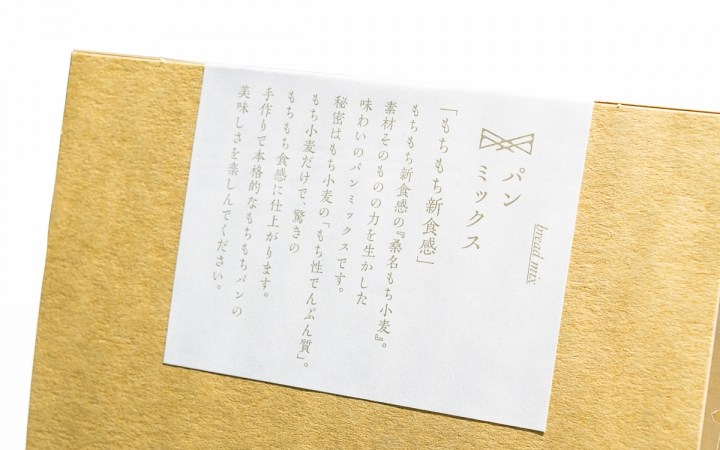 bread mix
パンミックス
「もちもち新食感」
もちもち新食感の『桑名もち小麦』。
素材そのものの力を生かした
味わいのパンミックスです。
秘密はもち小麦の「もち性でんぷん質」。
もち小麦だけで、驚きの
もちもち食感に仕上がります。
手作りで本格的なもちもちパンの
美味しさを楽しんでください。